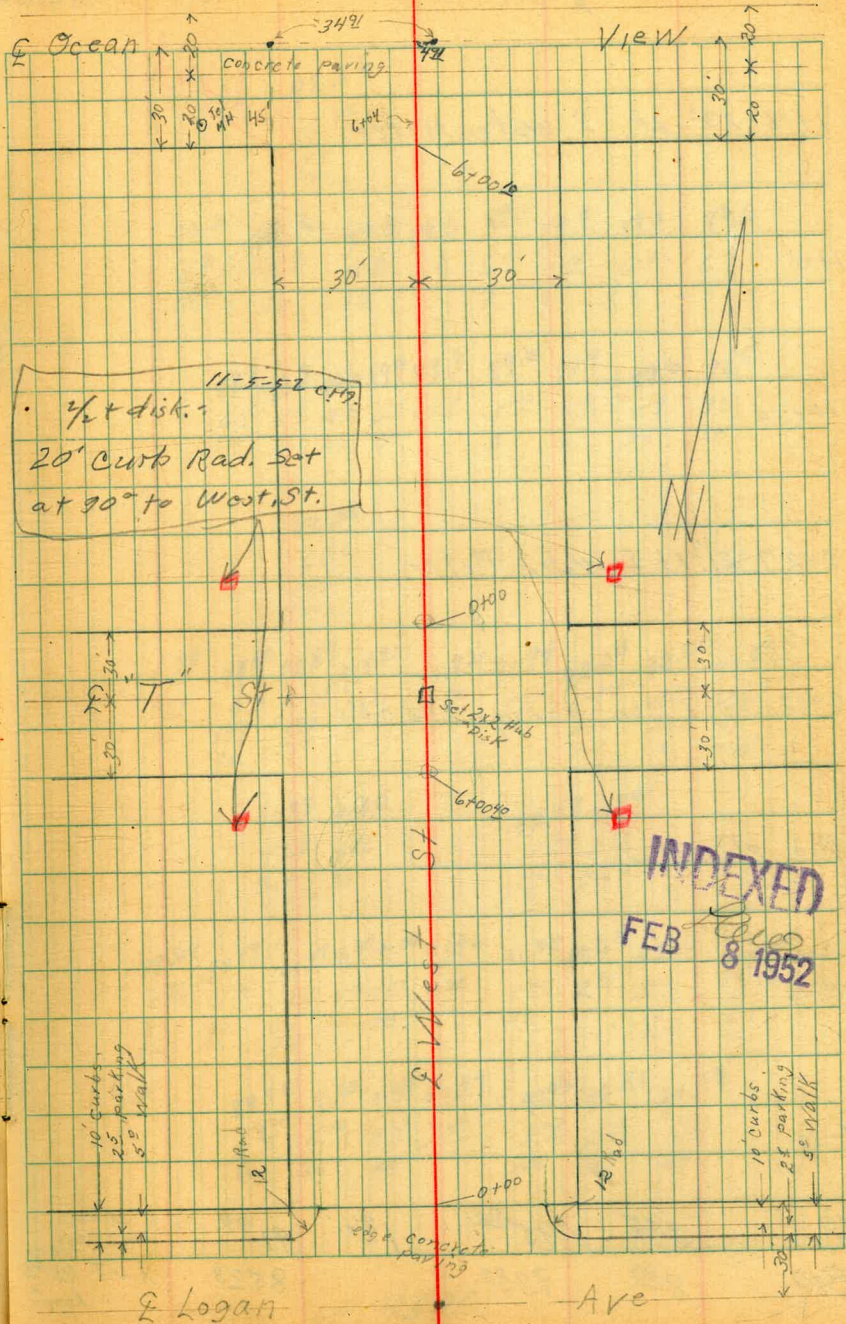 34 91
℄ Ocean View
491
concrete paving
30'
20 20
30'
20 20
Tel
MH 45'
6+04
6+00 10
30' 30'
11-5-52
1/2 + disk.
20' Curb Rad. Set
at 90° to West, St.
N
0+00
30'
℄ "T" St
30'
30'
30'
Set 2x2 Hub
Disk
6+00 40
℄ West St
INDEXED
FEB 8 1952
10' curbs.
2 5 parking
5 0 walk
12' Rad
0+00
12 Rad
10' curbs.
2 5 parking
5 0 walk
30'
edge concrete
paving
℄ Logan Ave